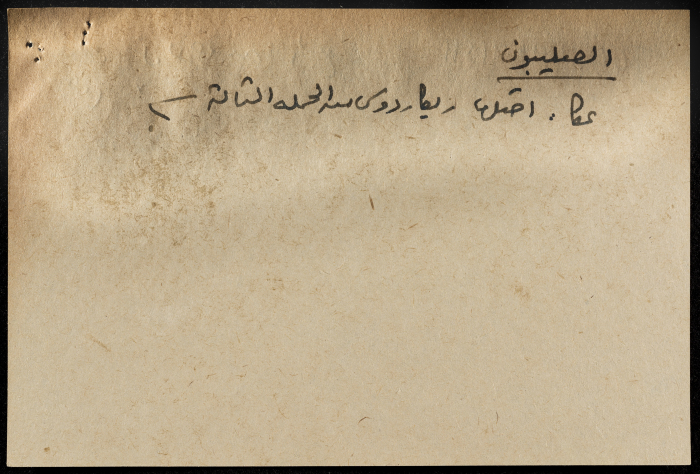 الصليبيون
عكا: احتلها ريكاردوس من الحمله الثالثة